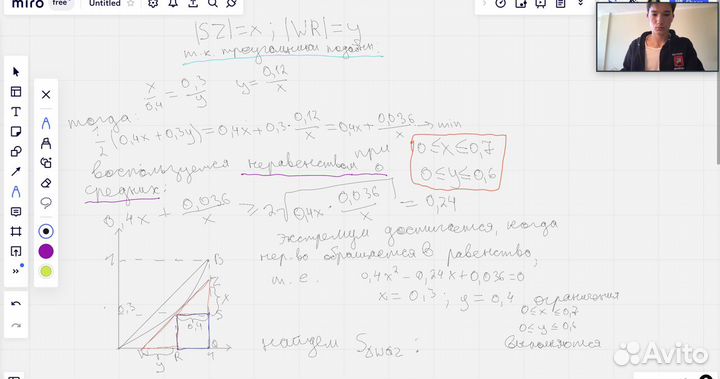 miro free Untitled
|SZ|=x ; |WR|=y
т.к. треугольники подобны:
x/0,4 = 0,3/y   y = 0,12/x
тогда:
1/2 (0,4x+0,3y) = 0,4x+0,3·0,12/x = 0,4x+0,036/x → min
при 0≤x≤0,7
0≤y≤0,6
воспользуемся неравенством о
средних:
0,4x + 0,036/x ≥ 2√(0,4x · 0,036/x) = 0,24
экстремум достигается, когда
нер-во обращается в равенство,
т.е. 0,4x² - 0,24x + 0,036 = 0
x = 0,3 ; y = 0,4
ограничения
0≤x≤0,7
0≤y≤0,6
выполняются
1
B
Z
x
0,3
S
0,4
W
R
Q
1
y
найдем
Avito